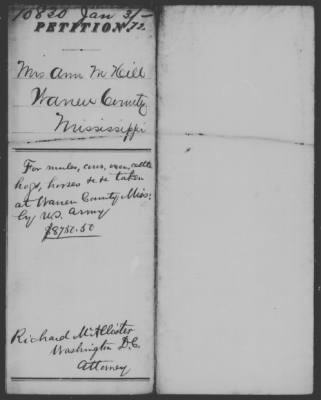 10830 Jan 31/-72
PETITION
Mrs Ann M Hill
Warren County
Mississippi
For mules, corn, oxen, cattle
hogs, horses &c &c taken
at Warren County, Miss:
by U.S. Army
$8750.50
Richard McAllister
Washington D.C.
Attorney